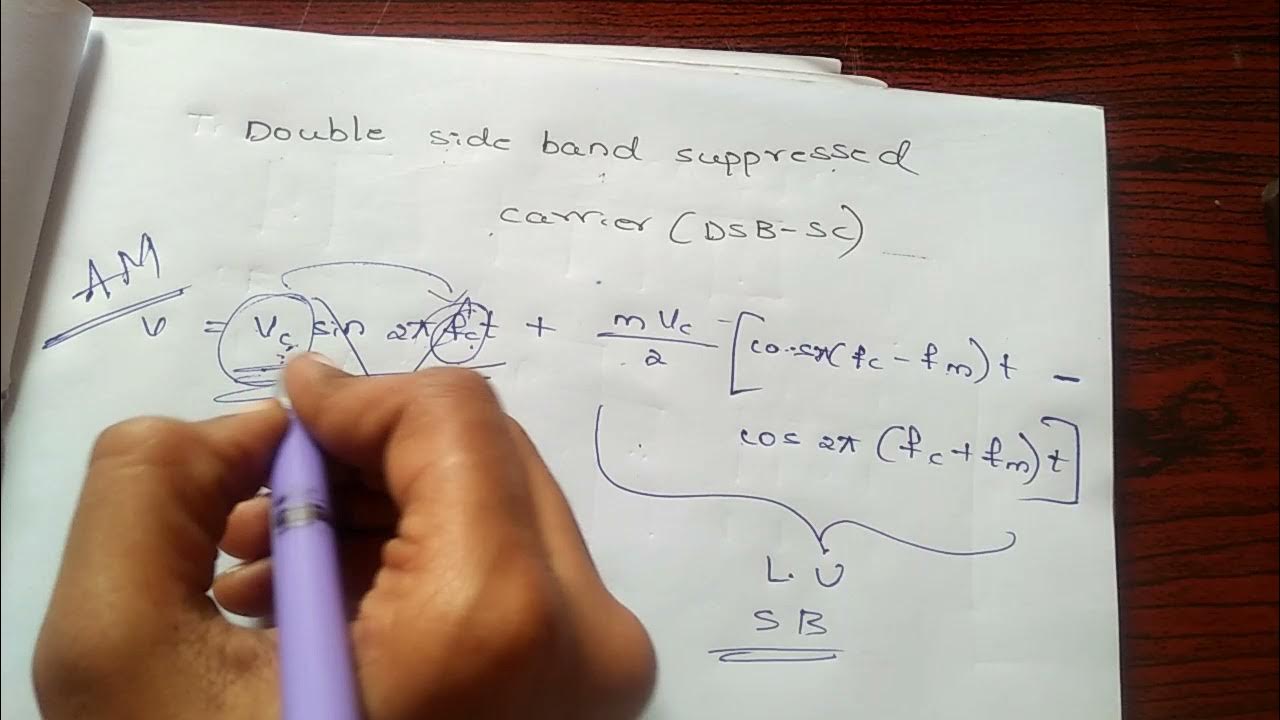 Double side band suppressed
carrier (DSB-SC)
AM
v = Vc sin 2π fct + m Vc / 2 [cos 2π(fc - fm) t -
cos 2π (fc + fm) t]
L. U
S B